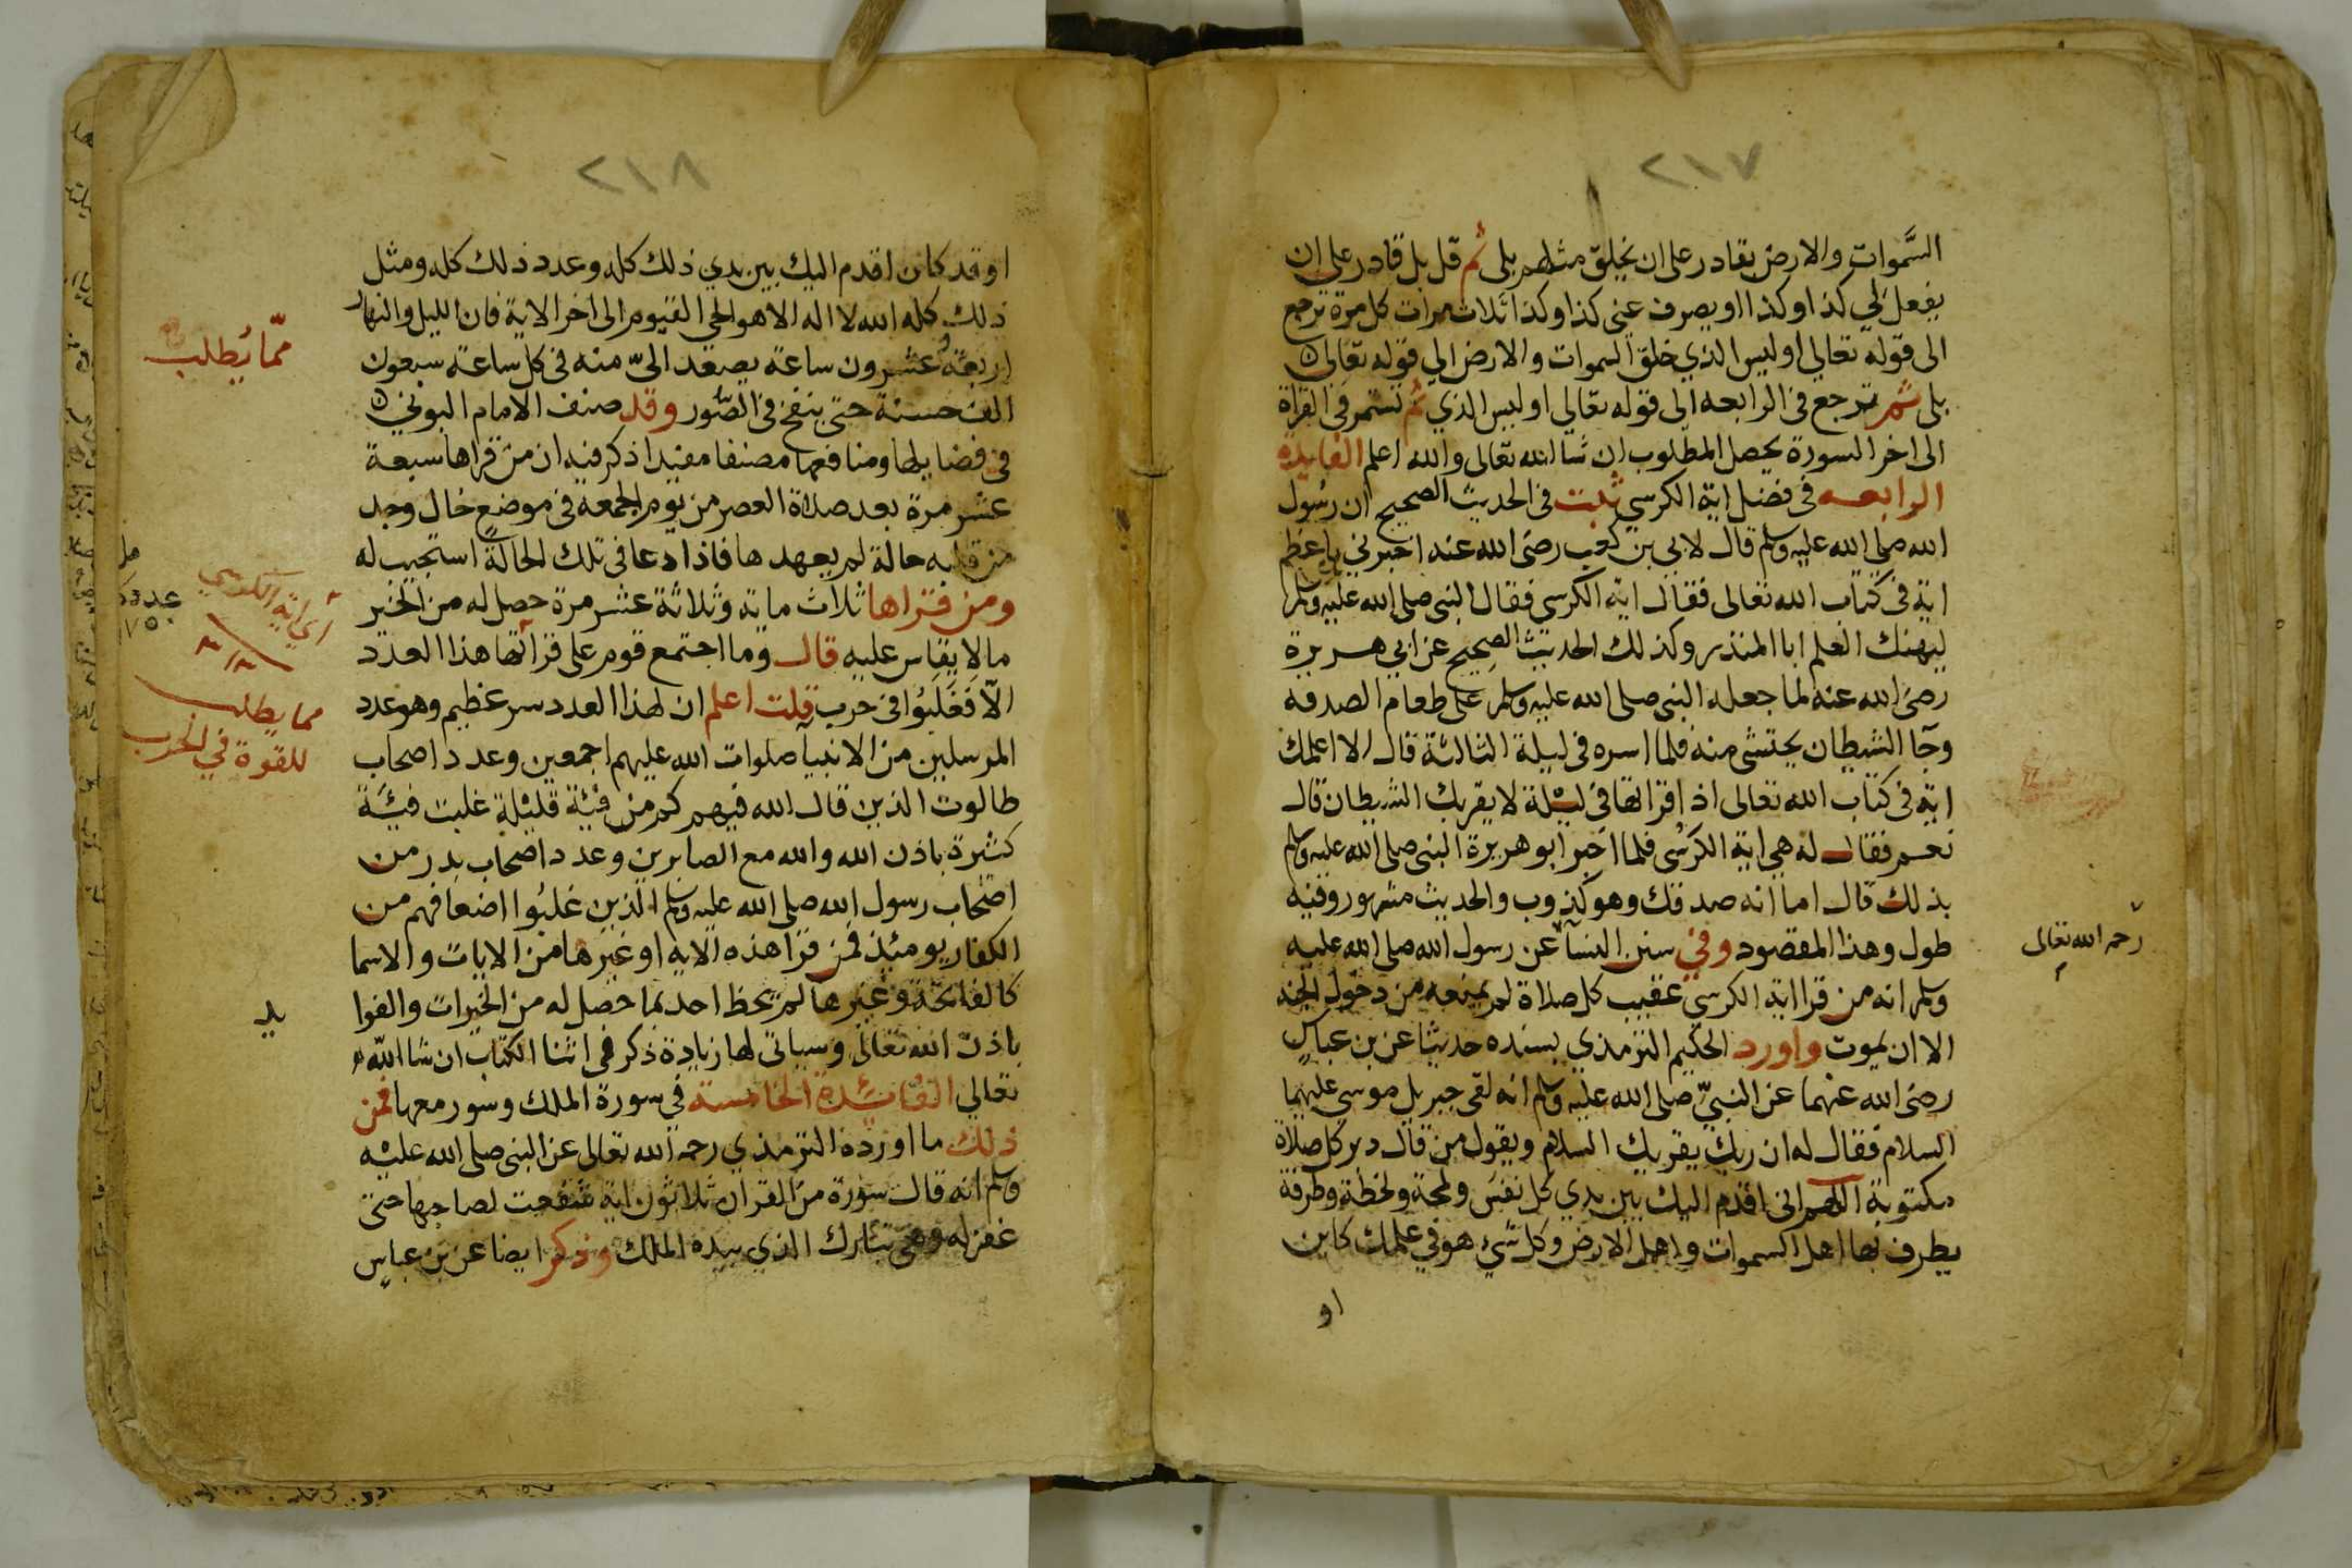 ٢١٧
السَّموات والارض بقادر على ان يخلق مثلهم بلى ثم قل بل قادر على ان
يفعل لي كذا وكذا او يصرف عني كذا وكذا ثلاث مرات كل مرة ترجع
الى قوله تعالي اوليس الذي خلق السموات والارض الي قوله تعالى
بلى ثم ترجع في الرابعه الى قوله تعالي اوليس الذي ثم تستمر في القراة
الى اخر السورة يحصل المطلوب ان شا الله تعالى والله اعلم الفايدة
الرابعه في فضل اية الكرسي ثبت في الحديث الصحيح ان رسول
الله صلى الله عليه وسلم قال لابي بن كعب رضى الله عنه اخبرني باعظم
اية في كتاب الله تعالى فقال اية الكرسي فقال النبى صلى الله عليه وسلم
ليهنك العلم ابا المنذر وكذلك الحديث الصحيح عن ابي هريرة
رضى الله عنه لما جعله النبى صلى الله عليه وسلم على طعام الصدقه
وجآ الشيطان يحتثى منه فلما اسره في ليلة الثالثة قال الا اعلمك
اية في كتاب الله تعالى اذا قراتها في ليلة لا يقربك الشيطان قال
نعم فقال له هي اية الكرسى فلما اخبر ابو هريرة النبى صلى الله عليه وسلم
بذلك قال اما انه صدقك وهو كذوب والحديث مشهور وفيه
طول وهذا المقصود وفي سنن النسآ عن رسول الله صلى الله عليه
وسلم انه من قرا اية الكرسي عقيب كل صلاة لم يمنعه من دخول الجنه
الا ان يموت واورد الحكيم الترمذي بسنده حديثا عن بن عباس
رضى الله عنهما عن النبيّ صلى الله عليه وسلم انه لقى جبريل موسى عليهما
السلام فقال له ان ربك يقريك السلام ويقول من قال دبر كل صلاة
مكتوبة اللهم اني اقدم اليك بين يدي كل نفس ولمحة ولحظة وطرفة
يطرف بها اهل السموات واهل الارض وكل شي هو في علمك كاين
او
رحمه الله تعالى
٢١٨
او قد كان اقدم اليك بين يدي ذلك كله وعدد ذلك كله ومثل
ذلك كله الله لا اله الا هو الحي القيوم الى اخر الاية فان الليل والنهار
اربعة وعشرون ساعة يصعد الىّ منه في كل ساعة سبعون
الف حسنة حتى ينفخ في الصّور وقد صنف الامام البوني
في فضايلها ومنافعها مصنفا مفيدا ذكر فيه ان من قراها سبعة
عشر مرة بعد صلاة العصر من يوم الجمعه في موضع خال وجد
من قلبه حالة لم يعهدها فاذا دعا في تلك الحالة استجيب له
ومن قراها ثلاث ماية وثلاثة عشر مرة حصل له من الخير
ما لا يقاس عليه قال وما اجتمع قوم على قراتها هذا العدد
الّا فغلبُوا في حرب قلت اعلم ان لهذا العدد سر عظيم وهو عدد
المرسلين من الانبيآ صلوات الله عليهم اجمعين وعدد اصحاب
طالوت الذين قال الله فيهم كم من فئة قليلة غلبت فئة
كثيرة باذن الله والله مع الصابرين وعدد اصحاب بدر من
اصحاب رسول الله صلى الله عليه وسلم الذين غلبُوا اضعافهم من
الكفار يومئذ فمن قرا هذه الاية او غيرها من الايات والاسما
كالفاتحة وغيرها لم يحظ احد بما حصل له من الخيرات والفوا
باذن الله تعالى وسياتى لها زيادة ذكر في اثنا الكتاب ان شا الله
تعالي الفائدة الخامسة في سورة الملك وسور معها فمن
ذلك ما اورده الترمذي رحمه الله تعالى عن النبى صلى الله عليه
وسلم انه قال سورة من القران ثلاثون اية شفعت لصاحبها حتى
غفر له وهي تبارك الذي بيده الملك وذكر ايضا عن بن عباس
ممّا يُطلب
اي اية الكرسي
مما يطلب
للقوة في الحرب
يد